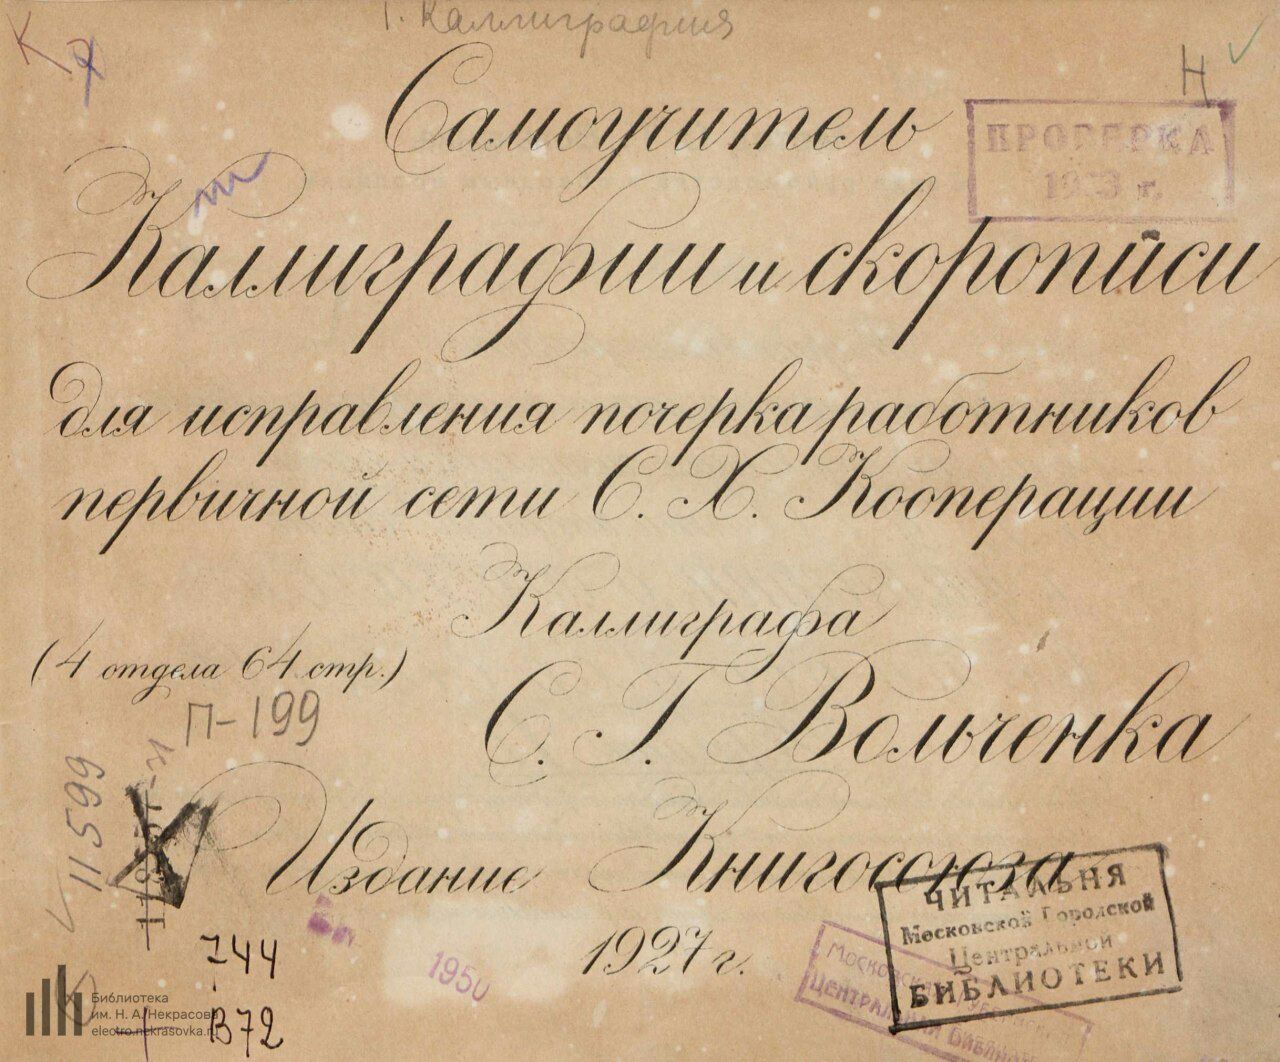 Каллиграфия
К
Н
Самоучитель
ПРОВЕРКА
Каллиграфии и скорописи
для исправления почерка работников
первичной сети С. Х. Кооперации
Каллиграфа
(4 отдела 64 стр.)
С. Г. Вольченка
П-199
11599
Издание Книгосоюза
1927 г.
ЧИТАЛЬНЯ
Московской Городской
Центральной
БИБЛИОТЕКИ
1950
744
В72
Библиотека
им. Н. А. Некрасова
electro.nekrasovka.ru